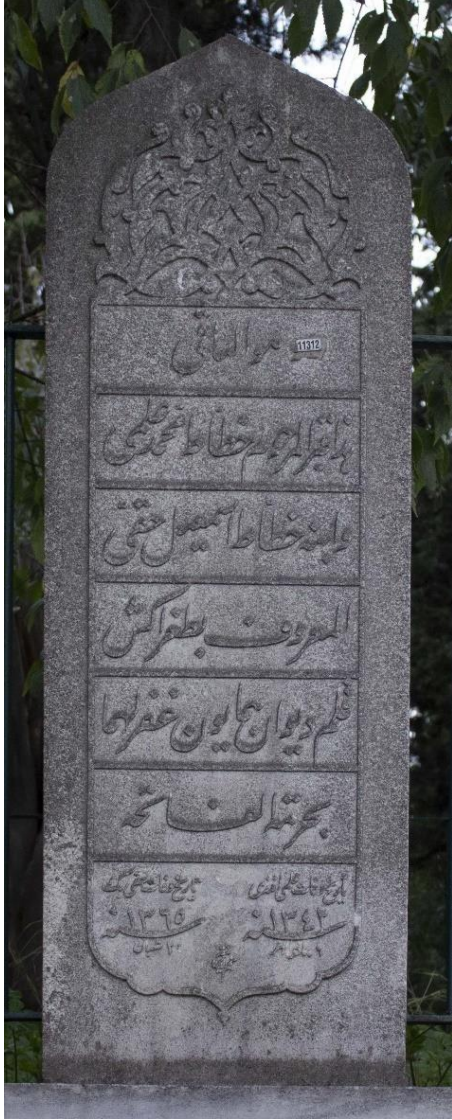 هو الباقی
11312
هذا قبر المرحوم خطاط محمد علمی
وابنه خطاط اسمعیل حقی
المعروف بطغراکش
قلم دیوان همایون غفرلهما
بحرمة الفاتحه
تاریخ وفات علمی افندی
سنه ١٣٤٢
تاریخ وفات حقی بك
سنه ١٣٦٥
شعبان